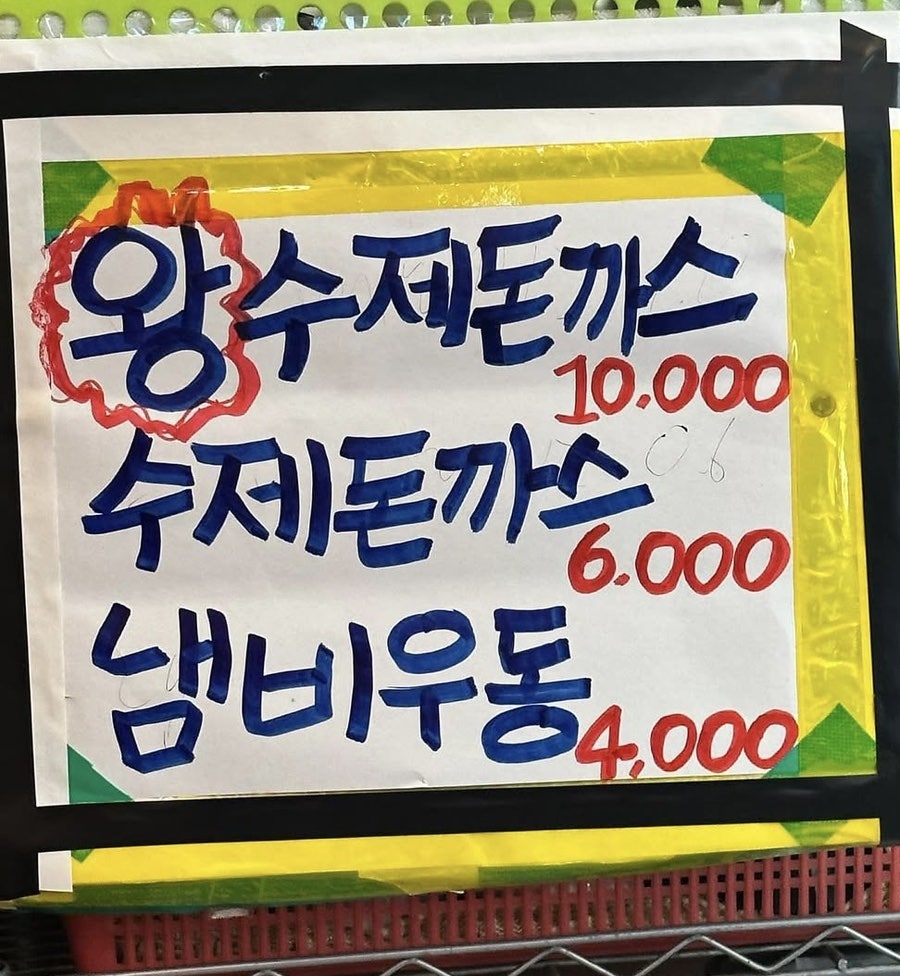 왕수제돈까스
10.000
수제돈까스
6.000
냄비우동
4,000